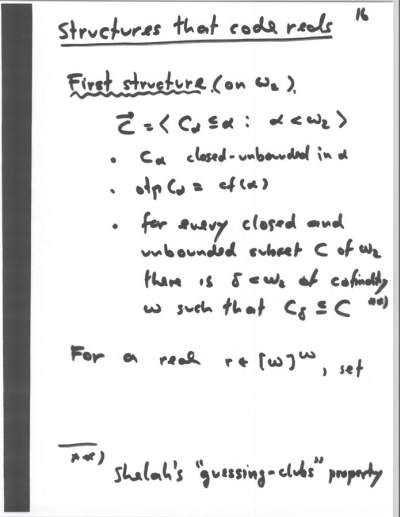 16
Structures that code reals
First structure (on ω₂)
C⃗ = ⟨ C_α ⊆ α : α < ω₂ ⟩
• C_α closed-unbounded in α
• otp C_α = cf(α)
• for every closed and
unbounded subset C of ω₂
there is δ < ω₂ of cofinality
ω such that C_δ ⊆ C **)
For a real r ∈ [ω]^ω, set
**)
Shelah's "guessing-clubs" property